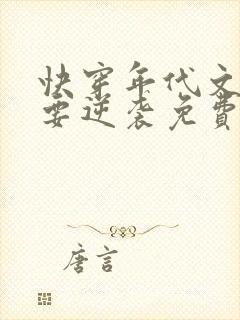 快穿年代文
要逆袭免費
唐言